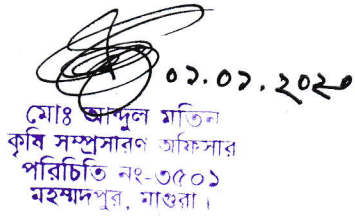 ০১.০১.২০২০
মোঃ আব্দুল মতিন
কৃষি সম্প্রসারণ অফিসার
পরিচিতি নং-৩৫০১
মহম্মদপুর, মাগুরা।